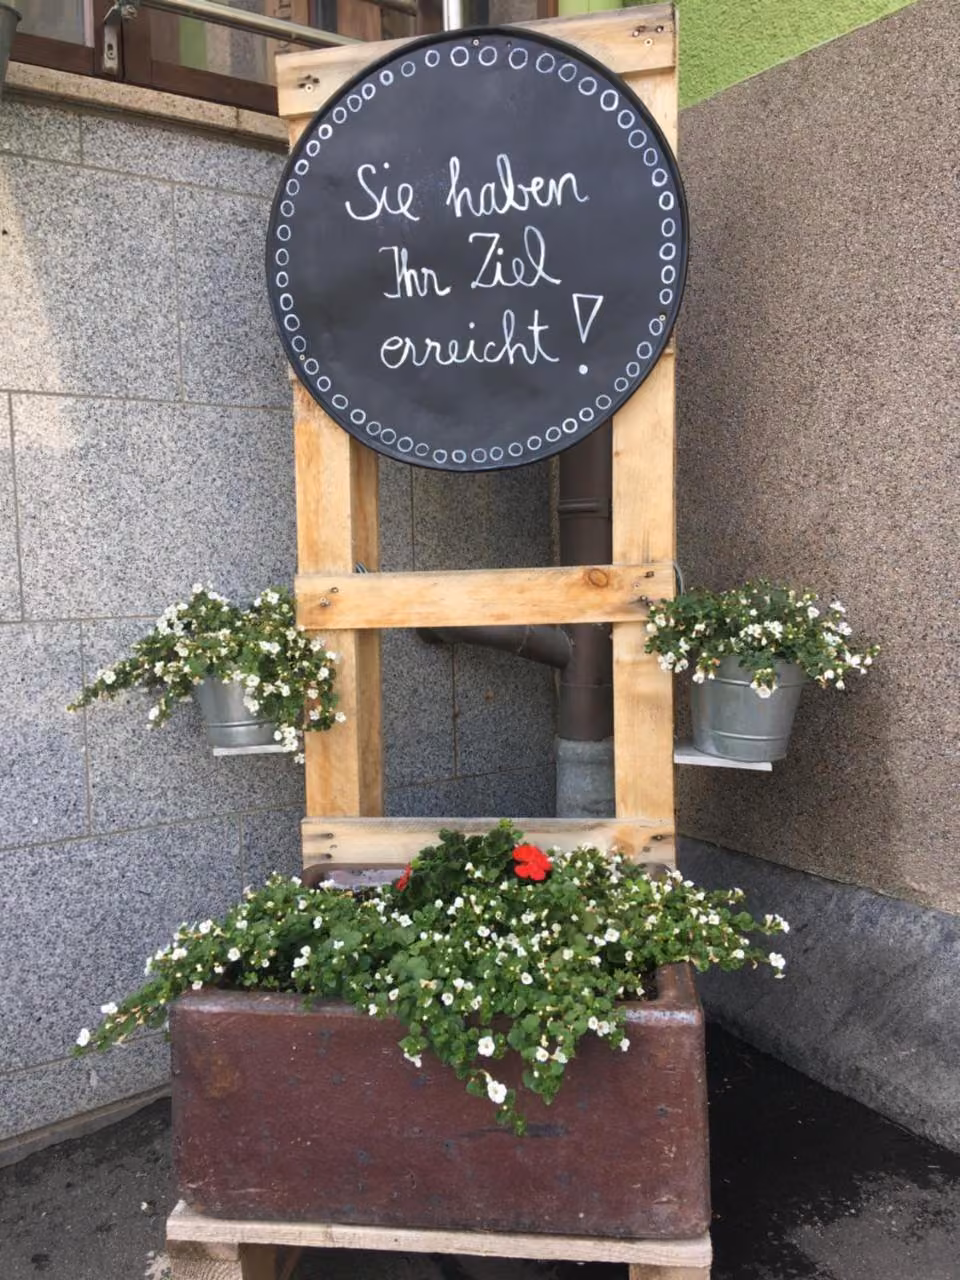 Sie haben
Ihr Ziel
erreicht!